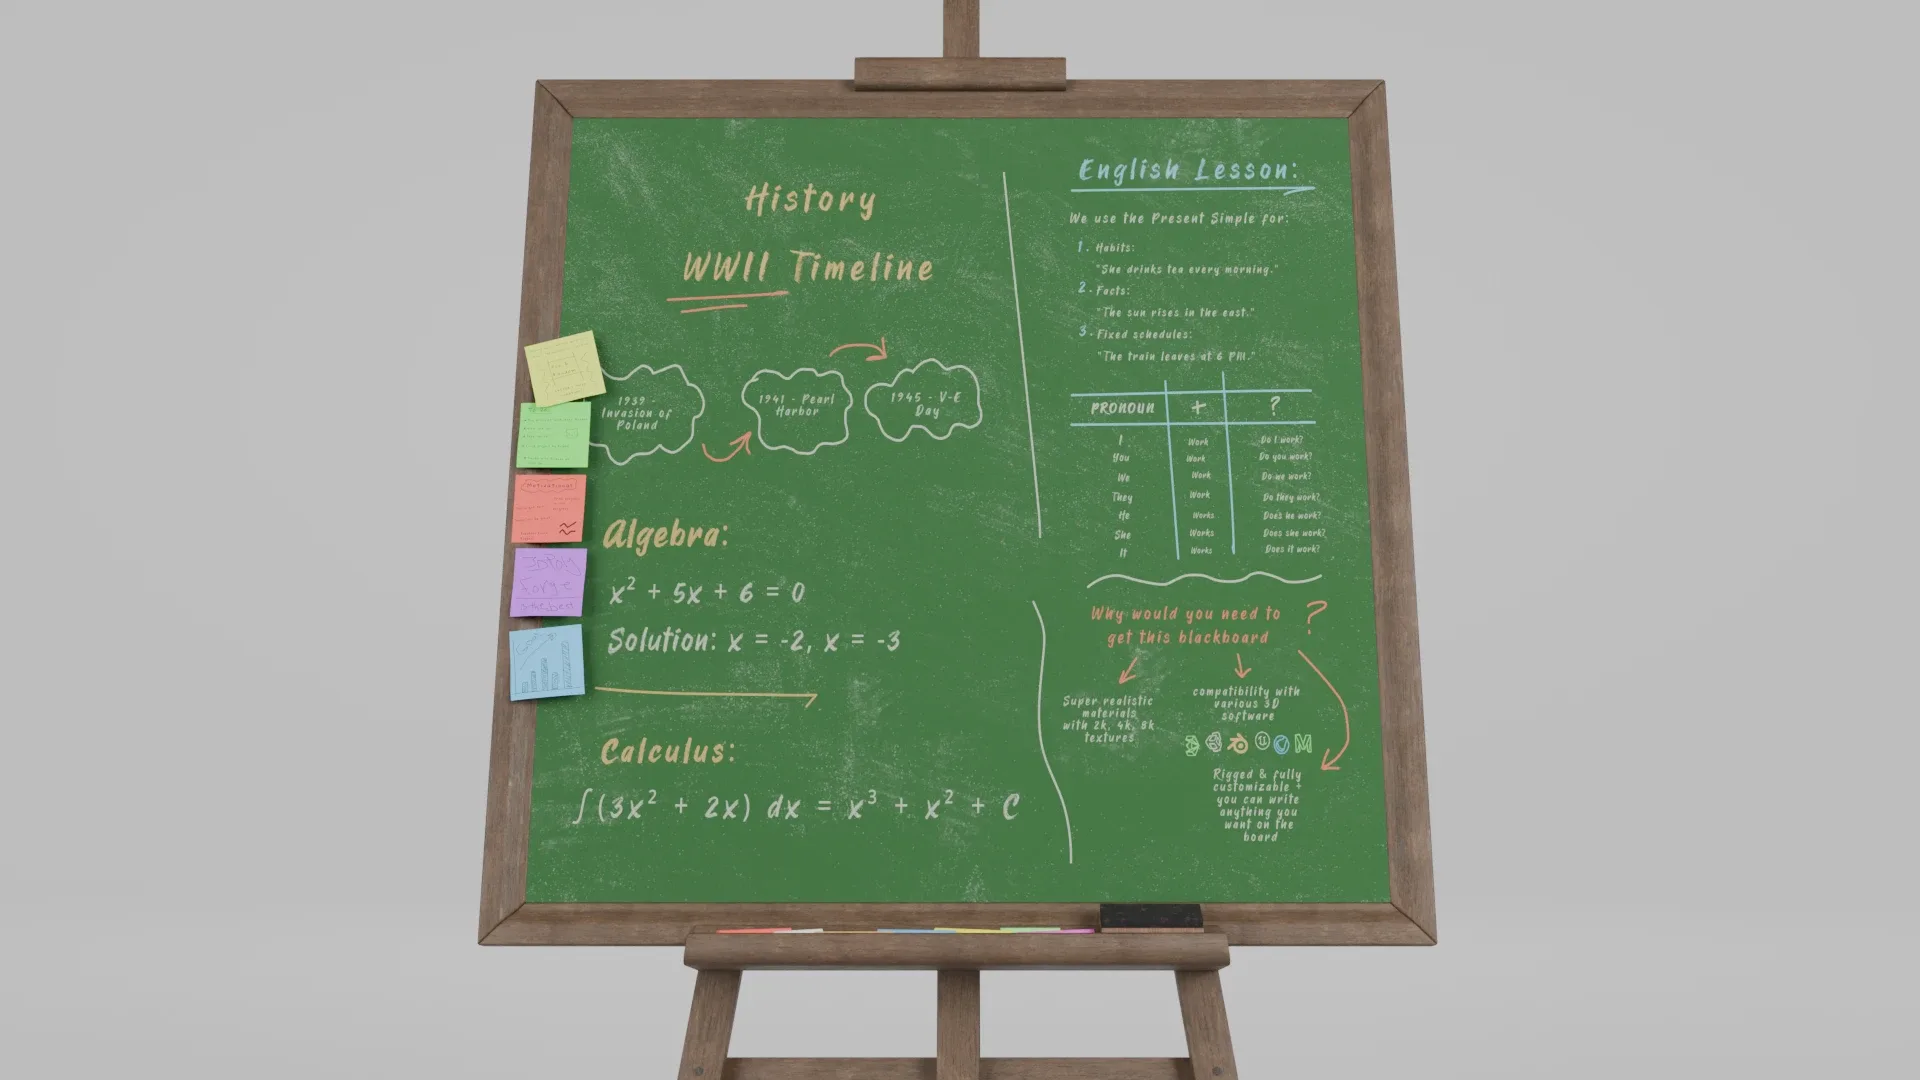 History
WWII Timeline
1939 -
Invasion of
Poland
1941 - Pearl
Harbor
1945 - V-E
Day
Algebra:
x² + 5x + 6 = 0
Solution: x = -2, x = -3
Calculus:
∫(3x² + 2x) dx = x³ + x² + C
English Lesson:
We use the Present Simple for:
1. Habits:
"She drinks tea every morning."
2. Facts:
"The sun rises in the east."
3. Fixed schedules:
"The train leaves at 6 PM."
PRONOUN + ?
I Work Do I work?
You Work Do you work?
We Work Do we work?
They Work Do they work?
He Works Does he work?
She Works Does she work?
It Works Does it work?
Why would you need to
get this blackboard ?
Super realistic
materials
with 2k, 4k, 8k
textures
compatibility with
various 3D
software
Rigged & fully
customizable +
you can write
anything you
want on the
board
Motivational